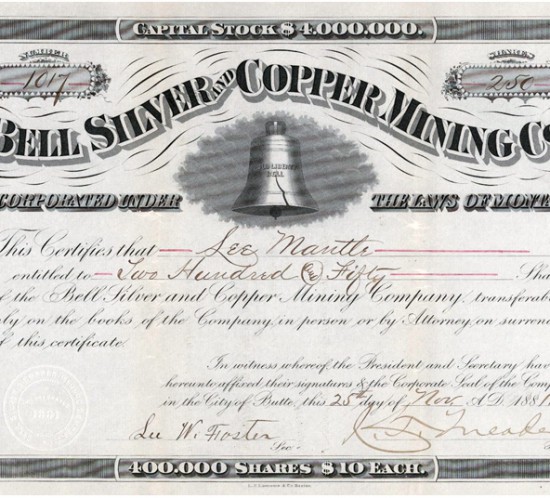 CAPITAL STOCK $4.000.000.
NUMBER
1017
SHARES
250
BELL SILVER AND COPPER MINING CO
LIBERTY
BELL
CORPORATED UNDER THE LAWS OF MONTA
This Certifies that Lee Mantle
entitled to Two Hundred & Fifty Sha
of the Bell Silver and Copper Mining Company, transferab
ly on the books of the Company, in person or by Attorney, on surren
f this certificate.
In witness whereof, the President and Secretary hav
hereunto affixed their signatures & the Corporate Seal of the Com
in the City of Butte, this 25th day of Nov A.D. 188
Lee W. Foster
Sec
400.000 SHARES $10 EACH.